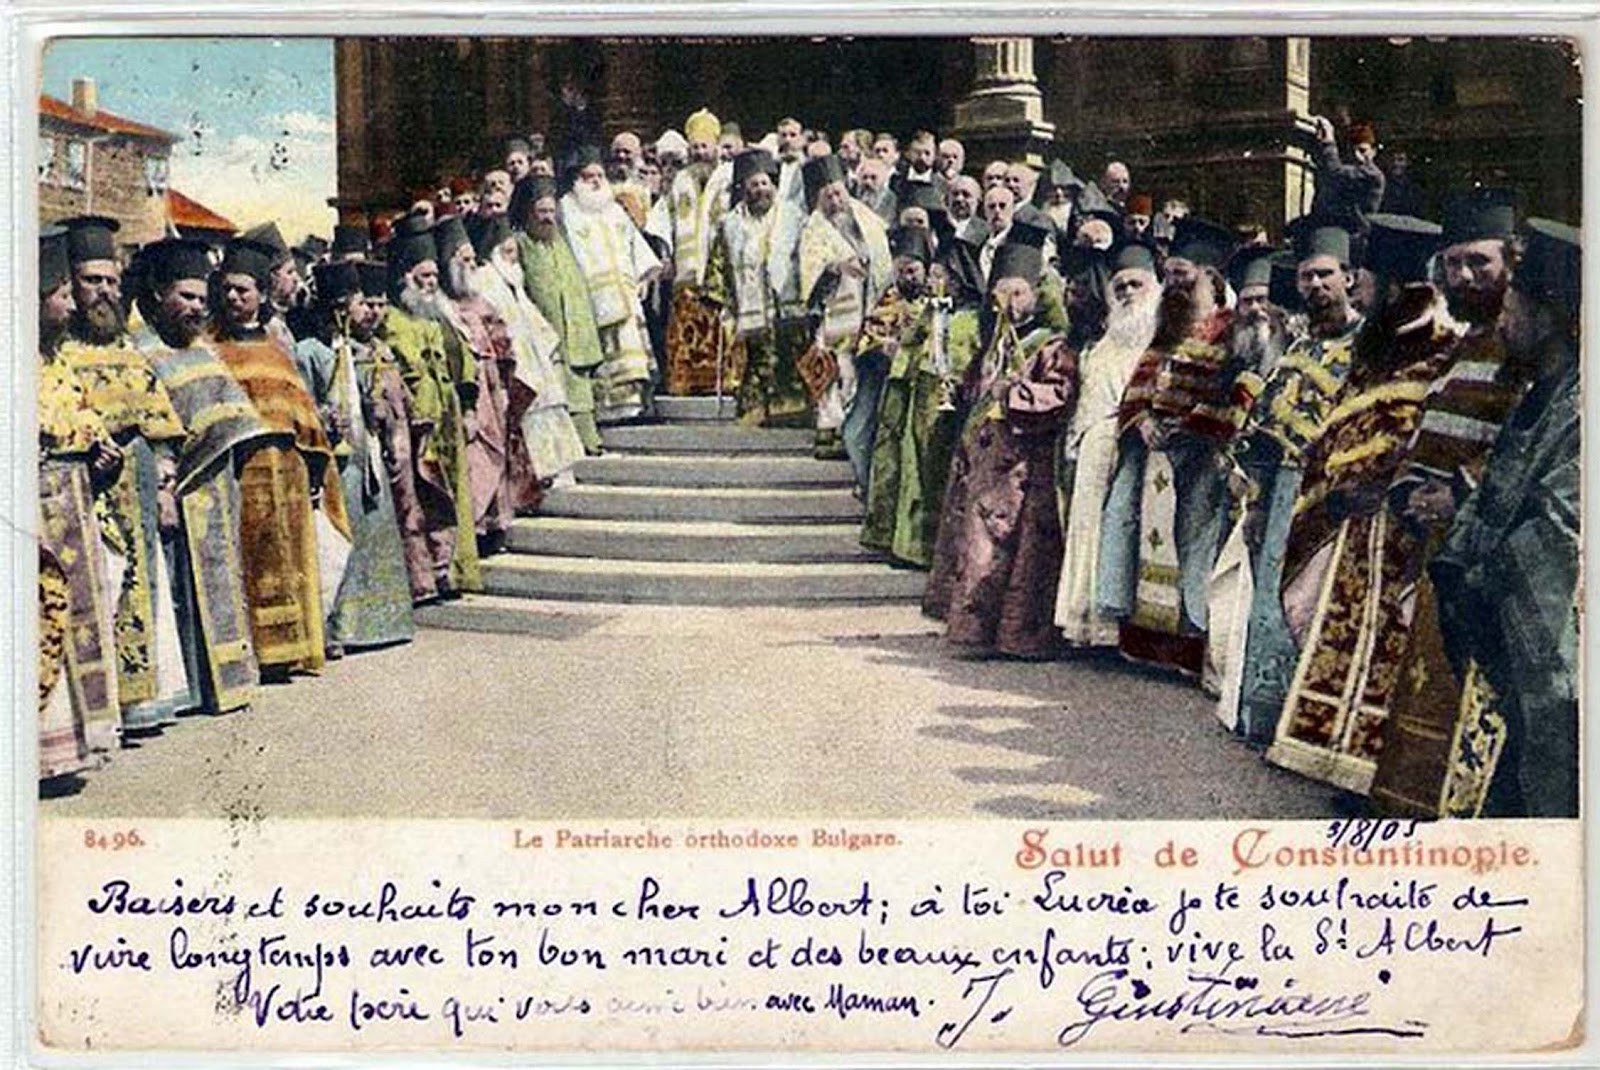 8496.
Le Patriarche orthodoxe Bulgare.
3/8/05
Salut de Constantinople.
Baisers et souhaits mon cher Albert; à toi Lucréa je te souhaite de
vivre longtemps avec ton bon mari et des beaux enfants; vive la St Albert
Votre père qui vous aime bien avec Maman.
J. Giustiniani